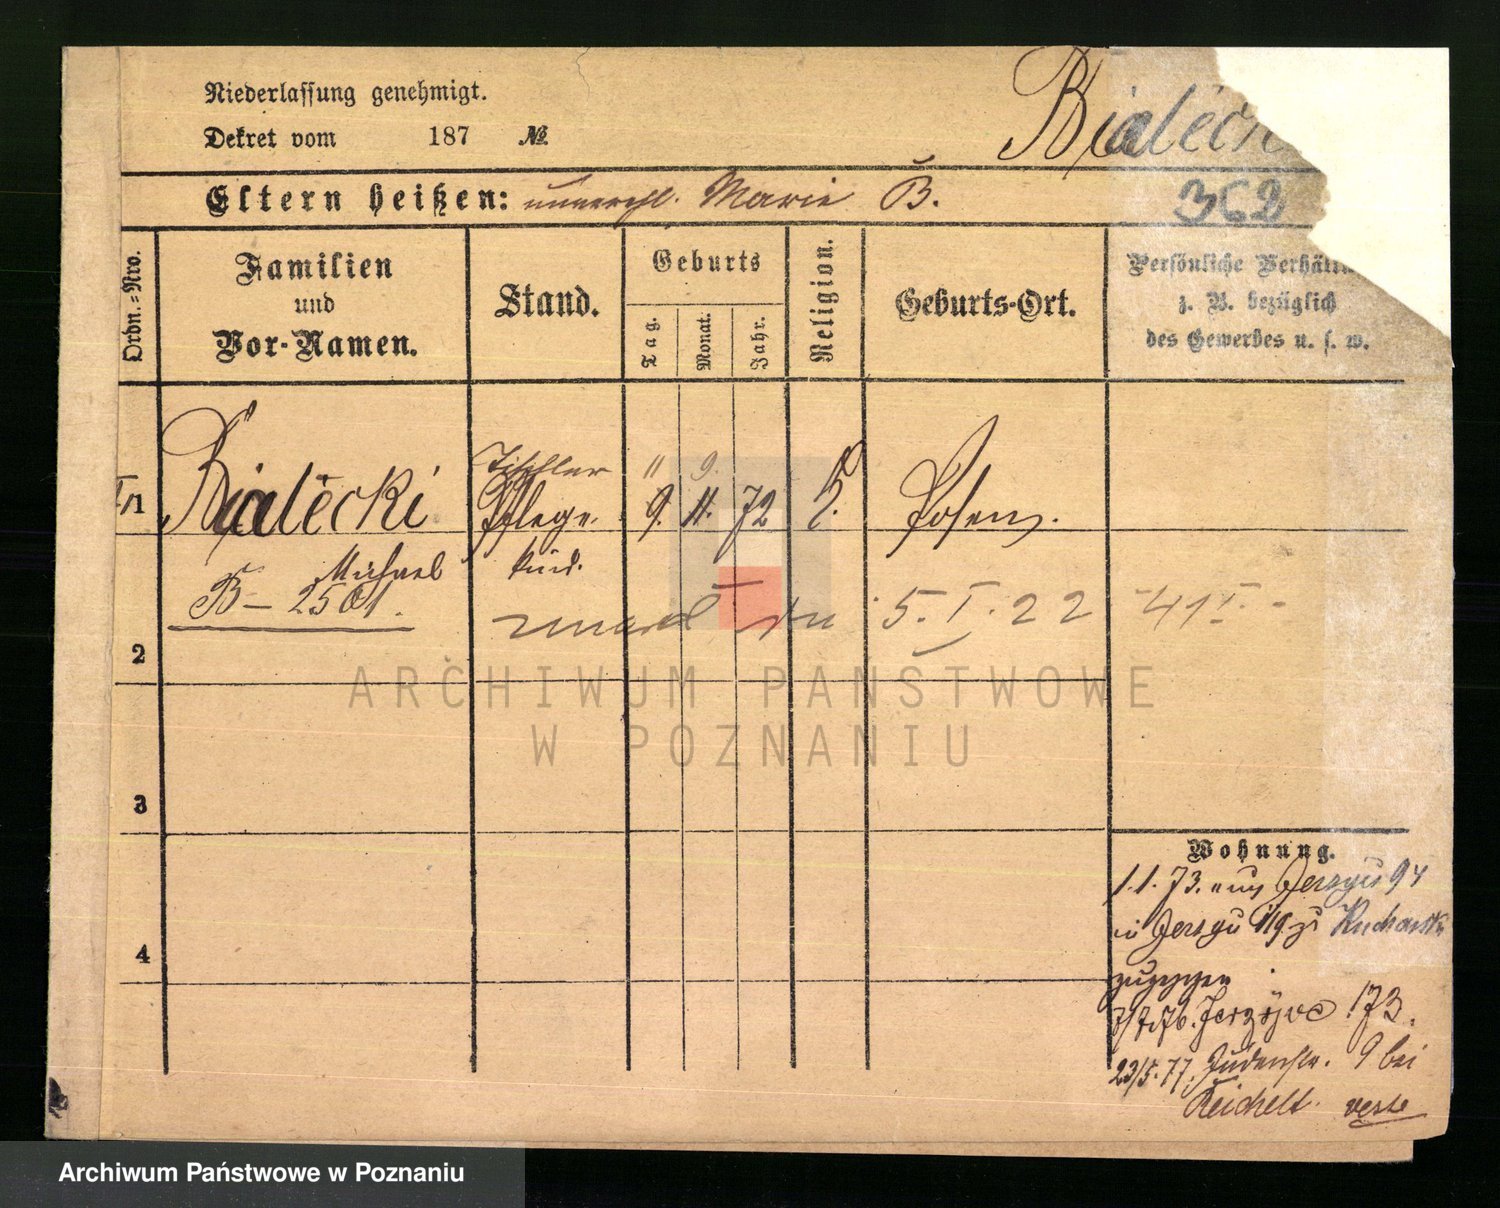 Niederlassung genehmigt.
Dekret vom 187 №
Bialecki
Eltern heißen: unverehl. Marie B.
362
Ordn.=Nro.
Familien
und
Vor-Namen.
Stand.
Geburts
Tag.
Monat.
Jahr.
Religion.
Geburts-Ort.
Persönliche Verhältn
z. B. bezüglich
des Gewerbes u. s. w.
1
Bialecki
Michael
B – 2501.
Tischler
Pflege
kind.
11 9.
9. 11. 72
k.
Posen.
5. I. 22
2
3
4
Wohnung.
1.1.73. aus Jerzyce 94
in Jerzyce 119 zu
zugezogen
7/7.76. Jerzyce 173.
23/5.77. Judenstr. 9 bei
Reichelt.
ARCHIWUM PAŃSTWOWE
W POZNANIU
Archiwum Państwowe w Poznaniu